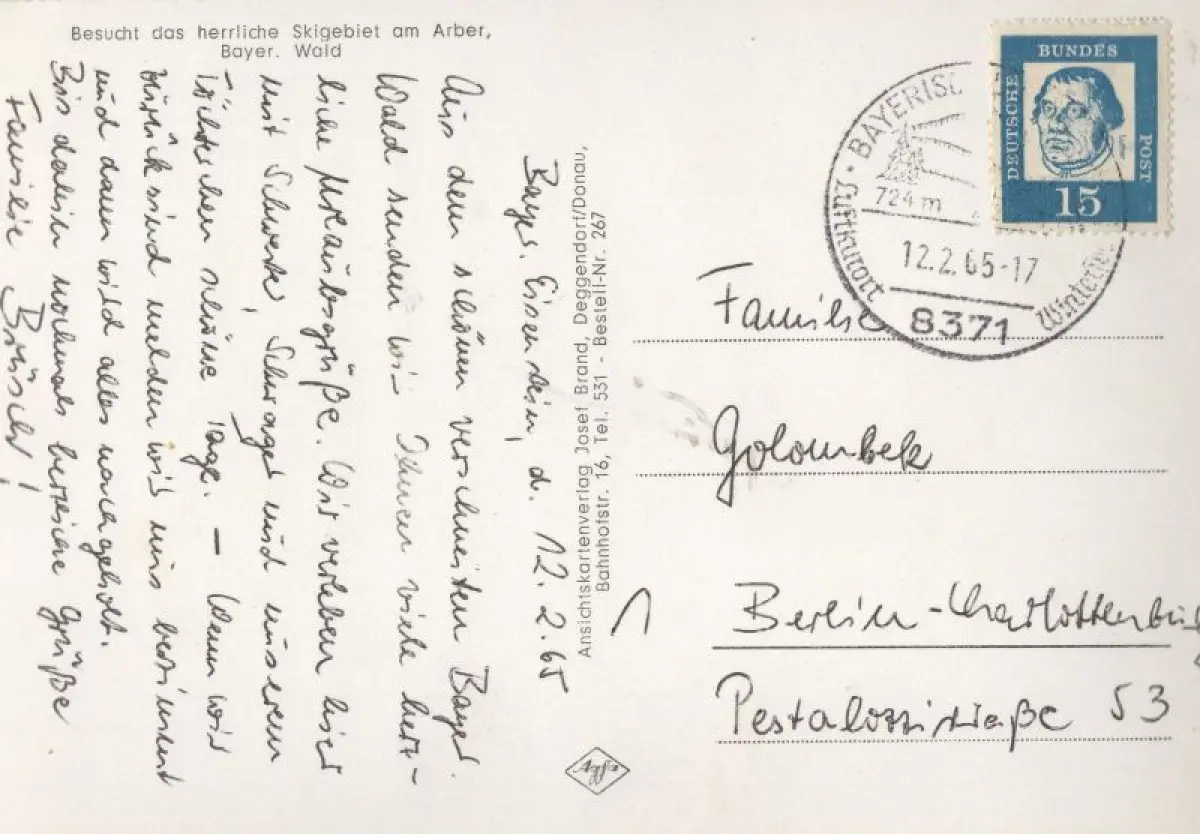 Besucht das herrliche Skigebiet am Arber,
Bayer. Wald
Bayer. Eisenstein, d. 12.2.65
Aus dem schönen verschneiten Bayer.
Wald senden wir Ihnen viele herz-
liche Urlaubsgrüße. Wir verleben hier
mit Schwester, Schwager und unserem
Töchterchen schöne Tage. — Wenn wir
zurück sind melden wir uns bestimmt
und dann wird alles nachgeholt.
Bis dahin nochmals herzliche Grüße
Familie Brüsch!
Ansichtskartenverlag Josef Brand, Deggendorf/Donau,
Bahnhofstr. 16, Tel. 531 - Bestell-Nr. 267
DEUTSCHE
BUNDES
POST
15
BAYERISC
724 m
12.2.65-17
8371
Luftkurort
Familie
Golombek
1
Berlin-Charlottenburg
Pestalozzistraße 53